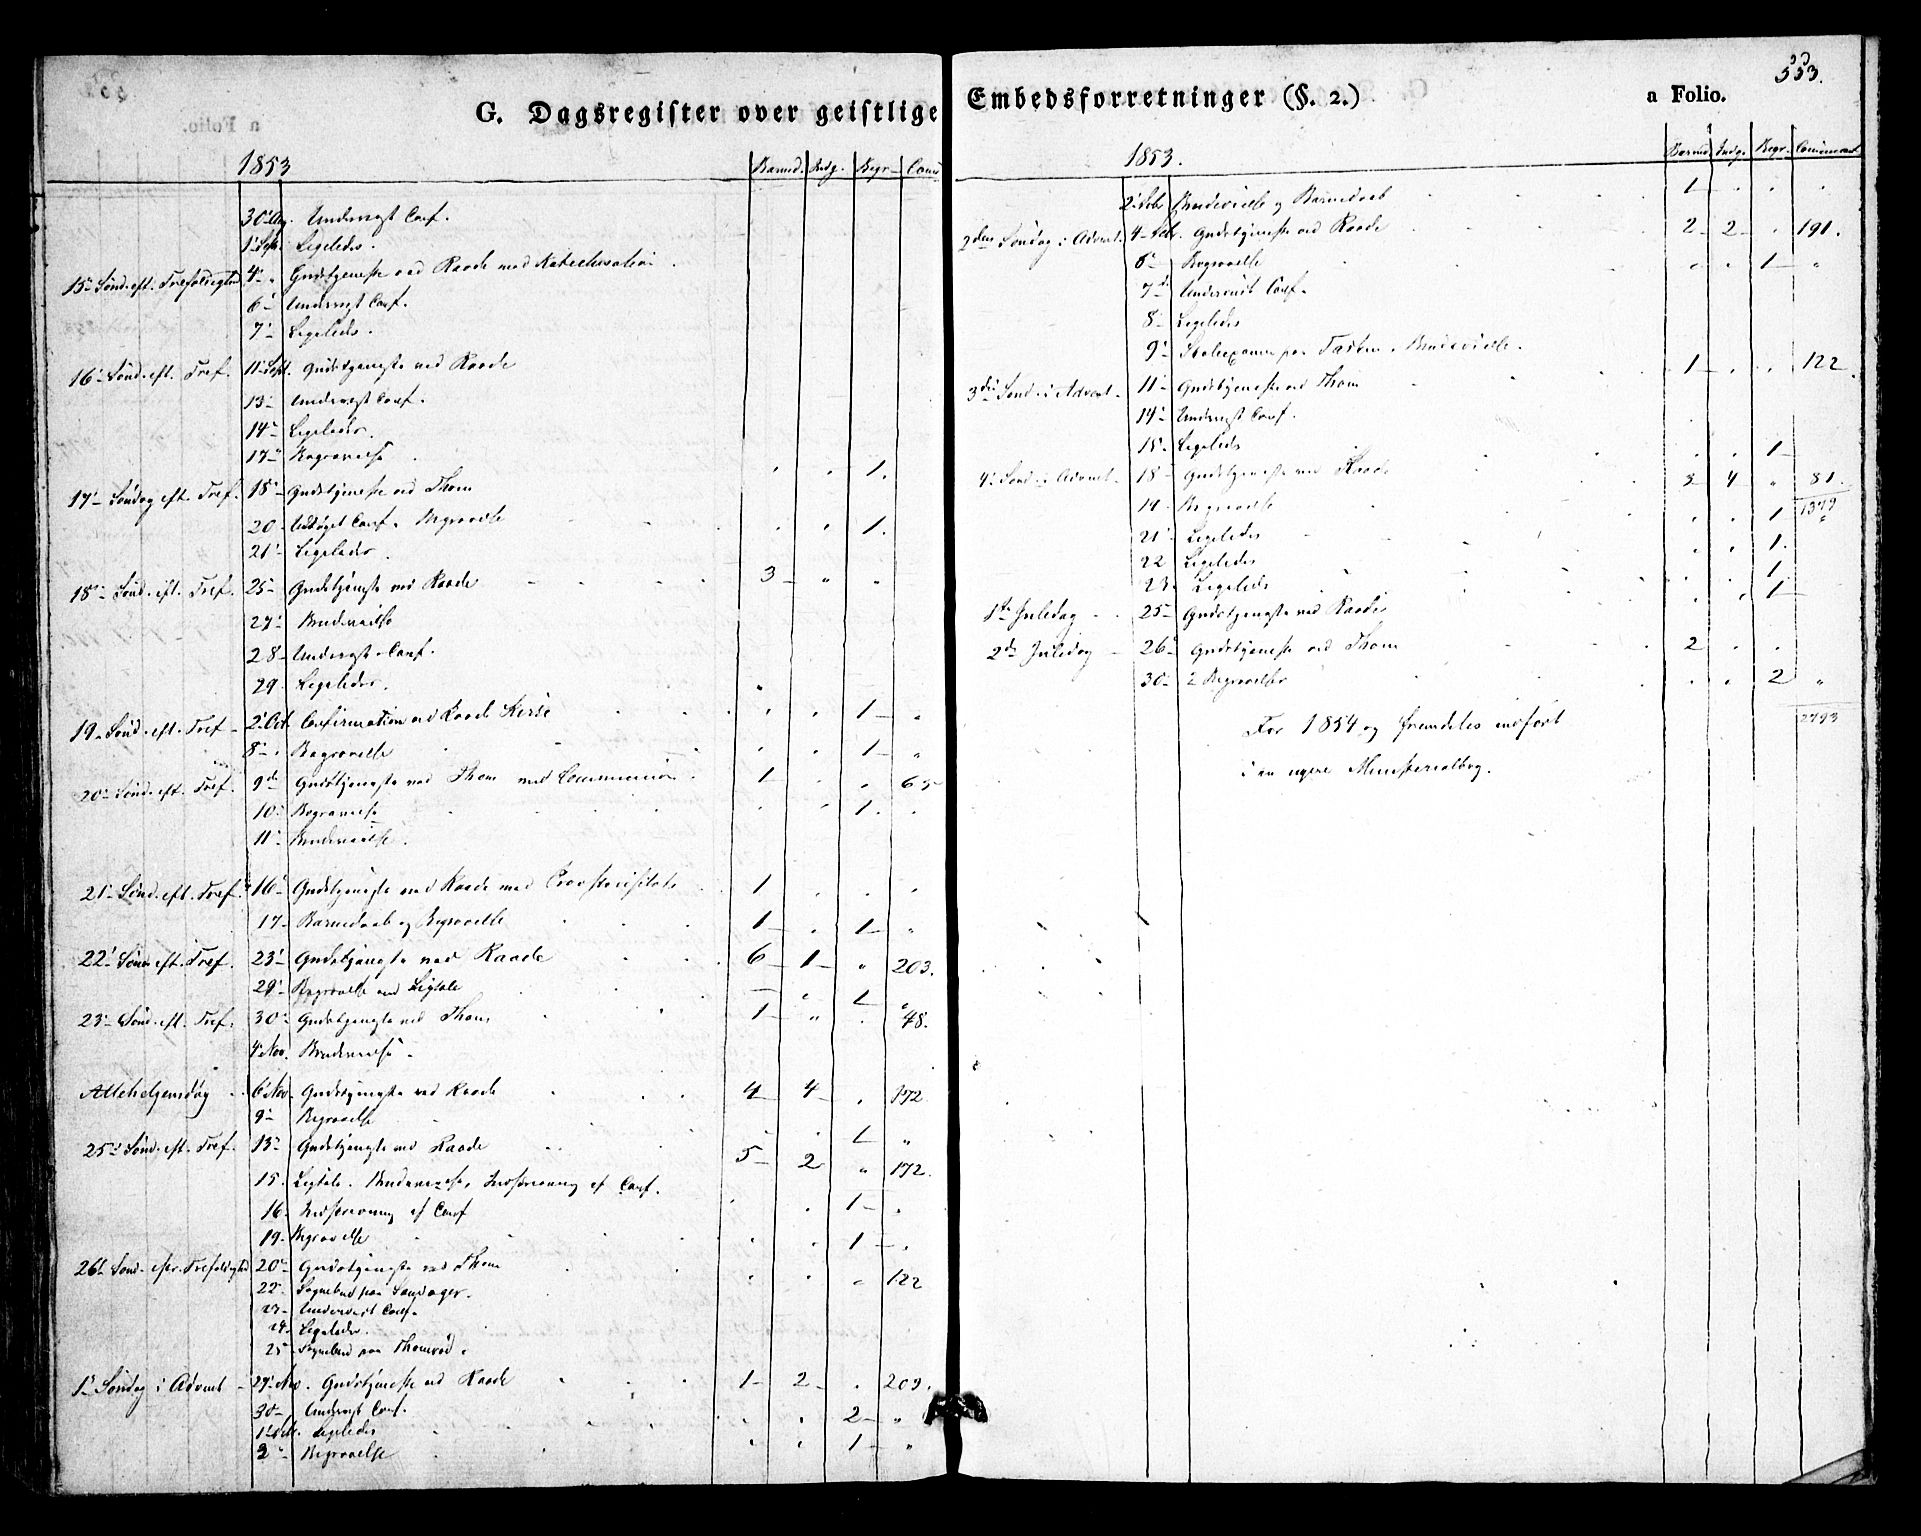 553.
G. Dagsregister over geistlige Embedsforretninger (§. 2.)
a Folio.
1853 Barned. Indg. Begr. Com
30 Aug. Underv. Conf.
1 Sept. Ligeledes.
15 Sønd. eft. Trefoldighed 4 Gudstjeneste ved Raade med Katechisation
6 Undervgst Conf.
7 Ligeleds.
16 Sønd. eft. Tref. 11 Sept. Gudstjeneste ved Raade
13 Undervgst Conf.
14 Ligeledes.
17 Begravelse . . 1.
17 Søndag eft. Tref. 18 Gudstjeneste ved Thom
20 Conf. Begravelse . . 1.
21 Ligeledes.
18 Sønd. eft. Tref. 25 Gudstjeneste ved Raade 3 " "
27 Brudevielse
28 Undervgst Conf.
29 Ligeledes.
19 Sønd. eft. Tref 2 Oct. Confirmation ved Raade Kirke . . 1 "
8 Begravelse . . 1 "
20 Sønd. eft. Tref. 9de Gudstjeneste ved Thom med Communion 1 . . 65
10 Begravelse . . 1 .
11 Brudevielse.
21 Sønd. eft. Tref. 16 Gudstjeneste ved Raade med Provstevisitats 1 . . .
17 Barnedaab og Begravelse 1 . 1 "
22 Sønd. eft. Tref. 23 Gudstjeneste ved Raade 6 1 " 203.
29 Begravelse med Ligtale 1 "
23 Sønd. eft. Tref. 30 Gudstjeneste ved Thom 1 " . 48.
4 Nov. Brudevielse
Allehelgensdag 6 Nov. Gudstjeneste ved Raade 4 4 . 172
9 Begravelse . . 1 "
25 Sønd. eft. Tref. 13 Gudstjeneste ved Raade 5 2 " 172.
15. Ligtale. Brudevielse, Indskrivning af Conf. . . 1 .
16 Indskrivning af Conf
19 Begravelse . . 1 .
26 Sønd. efter Trefoldighed 20 Gudstjeneste ved Thom . . " 122
22 Sognebud paa
23 Undervist Conf.
24 Ligeledes.
25 Sognebud paa Thomrød.
1 Søndag i Advent 27 Nov. Gudstjeneste ved Raade 1 2 . 209.
30 Undervgst Conf. . . 2 "
1 Dcbr. Ligeledes
2 Begravelse . . 1 "
1853. Barned. Indg. Begr. Communicant
2 Dcbr Brudevielse og Barnedaab 1 . . .
2den Søndag i Advent. 4 Dcbr. Gudstjeneste ved Raade 2 2 . 191.
6 Begravelse . . 1 "
7de Undervist Conf.
8 Ligeledes
9 Skoleexamen paa Brudevielse.
3die Sønd. i Advent 11 Gudstjeneste ved Thom 1 . . 122
14 Undervgst Conf.
15 Ligeleds . . 1
4 Sønd. i Advent 18 Gudstjeneste ved Raade 3 4 " 81.
19 Begravelse . . 1 1379
21 Ligeledes . . 1.
22 Ligeledes . . 1.
23 Ligeleds . . 1
1ste Juledag 25 Gudstjeneste ved Raade
2den Juledag 26 Gudstjeneste ved Thom 2 . .
30 2 Begravelser . . 2 "
2793
For 1854 og fremdeles indført
i en nyere Ministerialbog.